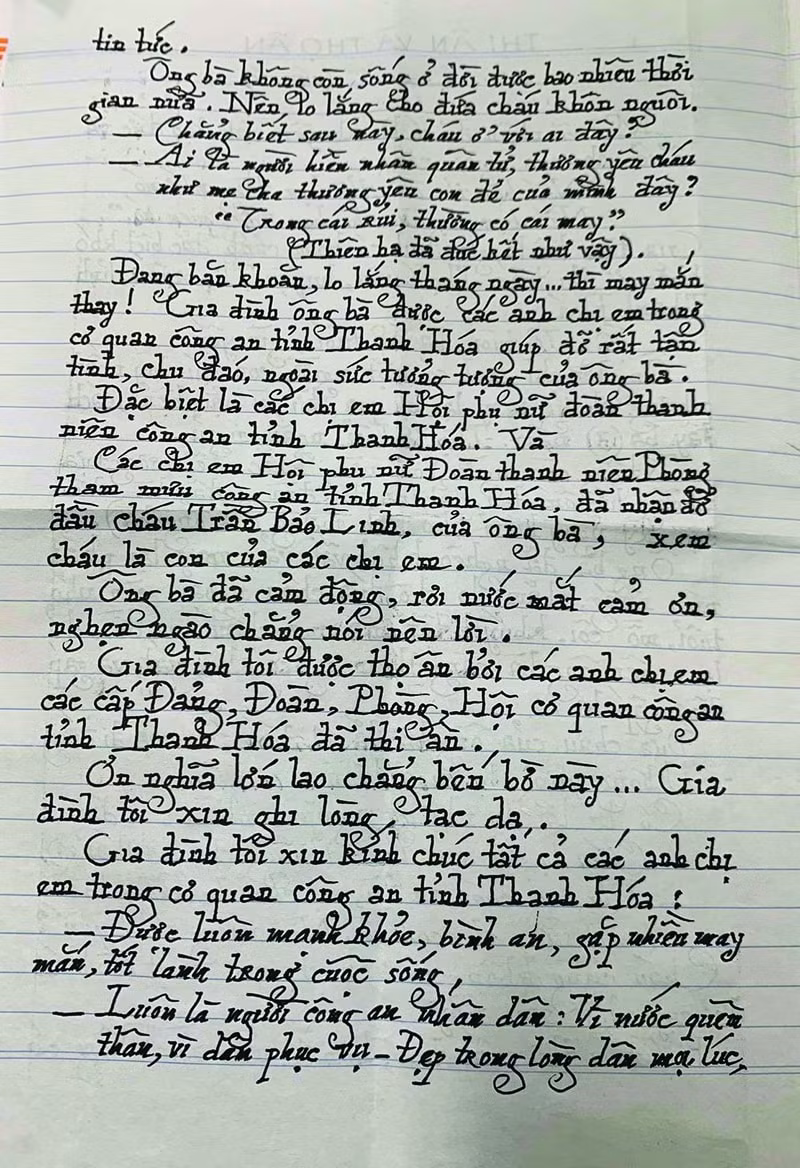 tin tức.
Ông bà không còn sống ở đời được bao nhiêu thời
gian nữa. Nên lo lắng cho đứa cháu khôn nguôi.
– Chẳng biết sau này, cháu ở với ai đây?
– Ai là người hiền nhân quân tử, thương yêu cháu
như mẹ cha thương yêu con đẻ của mình đây?
"Trong cái rủi, thường có cái may"
(Thiên hạ đã đúc kết như vậy).
Đang băn khoăn, lo lắng tháng ngày... thì may mắn
thay! Gia đình ông bà được các anh chị em trong
cơ quan công an tỉnh Thanh Hóa giúp đỡ rất tận
tình, chu đáo, ngoài sức tưởng tượng của ông bà.
Đặc biệt là các chị em Hội phụ nữ đoàn thanh
niên công an tỉnh Thanh Hóa. Và
Các chị em Hội phụ nữ Đoàn thanh niên Phòng
tham mưu công an tỉnh Thanh Hóa, đã nhận đỡ
đầu cháu Trần Bảo Linh, của ông bà, xem
cháu là con của các chị em.
Ông bà đã cảm động, rơi nước mắt cảm ơn,
nghẹn ngào chẳng nói nên lời.
Gia đình tôi được thọ ân bởi các anh chị em
các cấp Đảng, Đoàn, Phòng, Hội cơ quan công an
tỉnh Thanh Hóa đã thi ân.
Ơn nghĩa lớn lao chẳng bến bờ này... Gia
đình tôi xin ghi lòng, tạc dạ.
Gia đình tôi xin kính chúc tất cả các anh chị
em trong cơ quan công an tỉnh Thanh Hóa:
– Được luôn mạnh khỏe, bình an, gặp nhiều may
mắn, tốt lành trong cuộc sống,
– Luôn là người công an nhân dân: Vì nước quên
thân, vì dân phục vụ – Đẹp trong lòng dân mọi lúc,